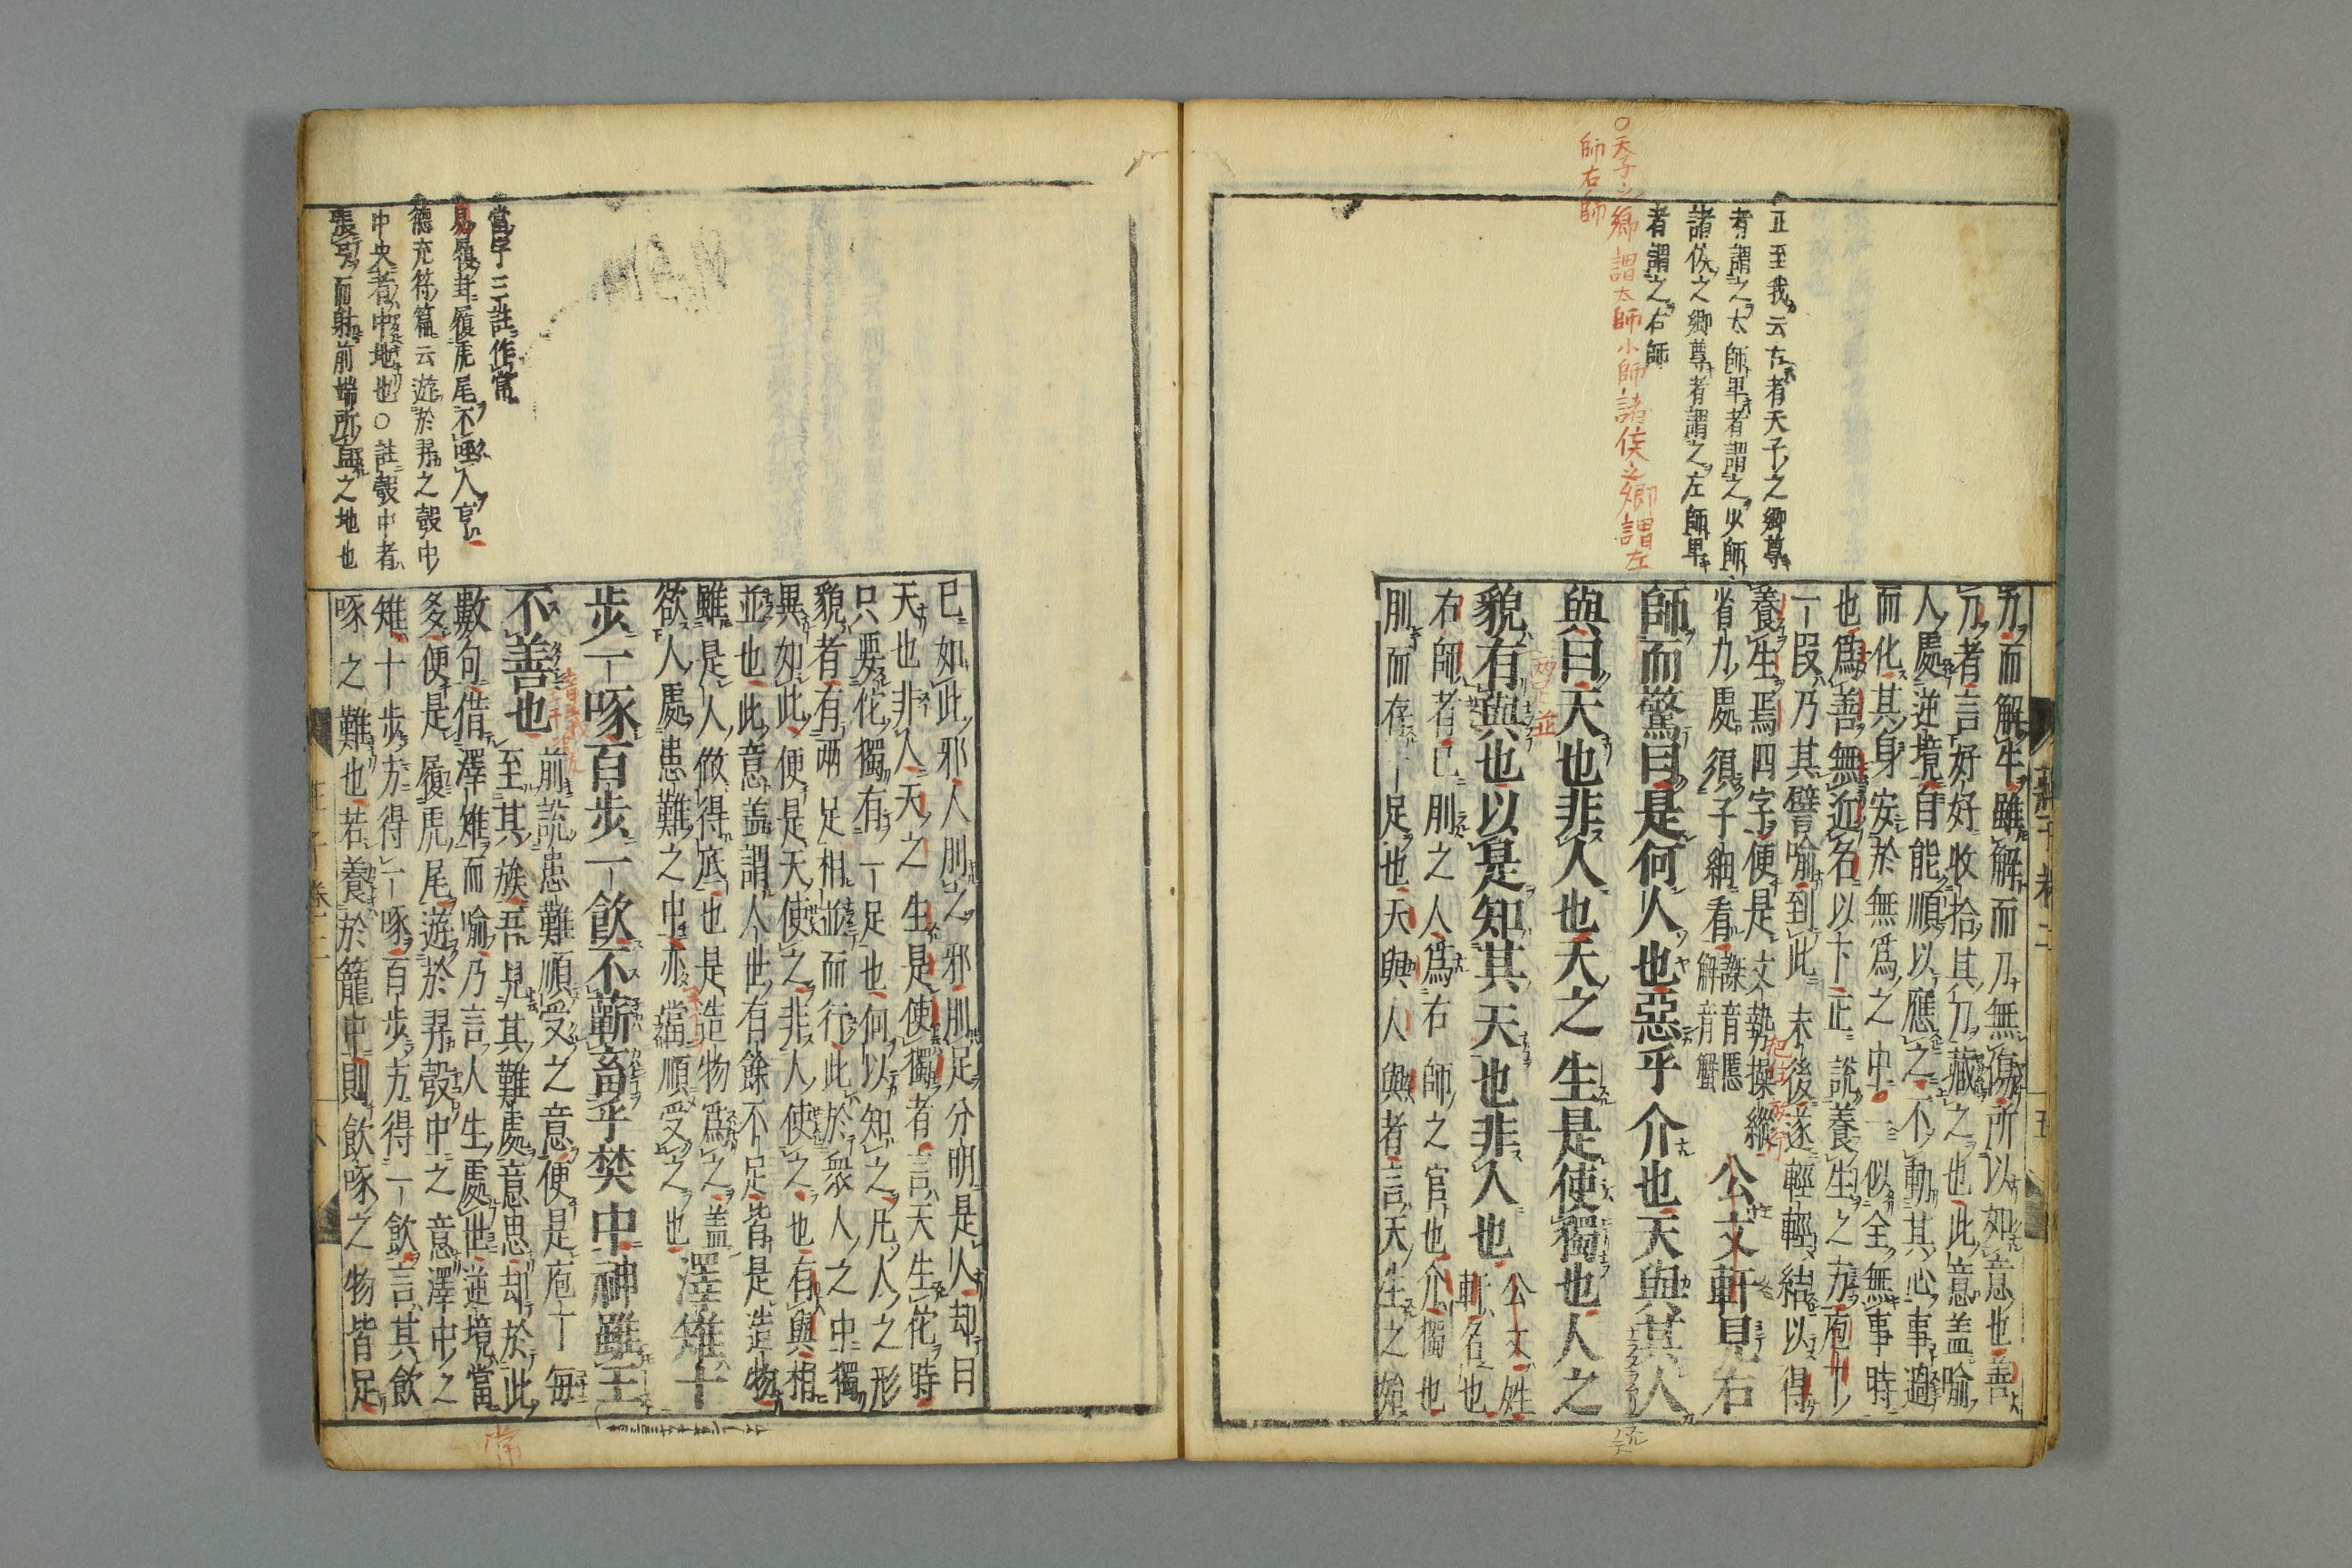 正至我云古者天子之卿尊
者謂之太師卑者謂之少師
諸侯之卿尊者謂之左師卑
者謂之右師
○天子之鄉謂太師小師諸侯之卿謂左
師右師
刀而解牛雖解而刀無傷所以如意也善
刀者言好好收拾其刀藏之也此意盖喻
人處逆境自能順以應之不動其心事過
而化其身安於無爲之中一似全無事時
也爲善無近名以下正說養生之方庖丁
一段乃其譬喻到此末後遂輕輕結以得
養生焉四字便是文勢操縱
省力處須子細看 觧音蟹 公文軒見右
師而驚曰是何人也惡乎介也天與其人
與曰天也非人也天之生是使獨也人之
貌有與也以是知其天也非人也 公文姓
軒名也
右師者已刖之人爲右師之官也介獨也
刖而存一足也天與人與者言天生之始
莊子卷二 五
當字三註作常
易履卦履虎尾不咥人亨
德充符篇云遊於羿之彀中
中央者中地也○註彀中者
張弓而射前端所直之地也
已如此邪人刖之邪刖足分明是人却曰
天也非人天之生是使獨者言天生佗時
只要佗獨有一足也何以知之凡人之形
貌者有兩足相並而行此於衆人之中獨
異如此便是天使之非人使之也有與相
並也此意盖謂人世有餘不足皆是造物
雖是人做得底也是造物爲之盖
欲人處患難之中亦當順受之也 澤雉十
步一啄百步一飲不蘄畜乎樊中神雖王
不善也 前說患難順受之意便是庖丁每
至其族吾見其難處意思却於此
數句借澤雉而喻乃言人生處世逆境當
多便是履虎尾遊於羿彀中之意澤中之
雉十步方得一啄百步方得一飲言其飲
啄之難也若養於籠中則飲啄之物皆足
常
莊子卷二 六